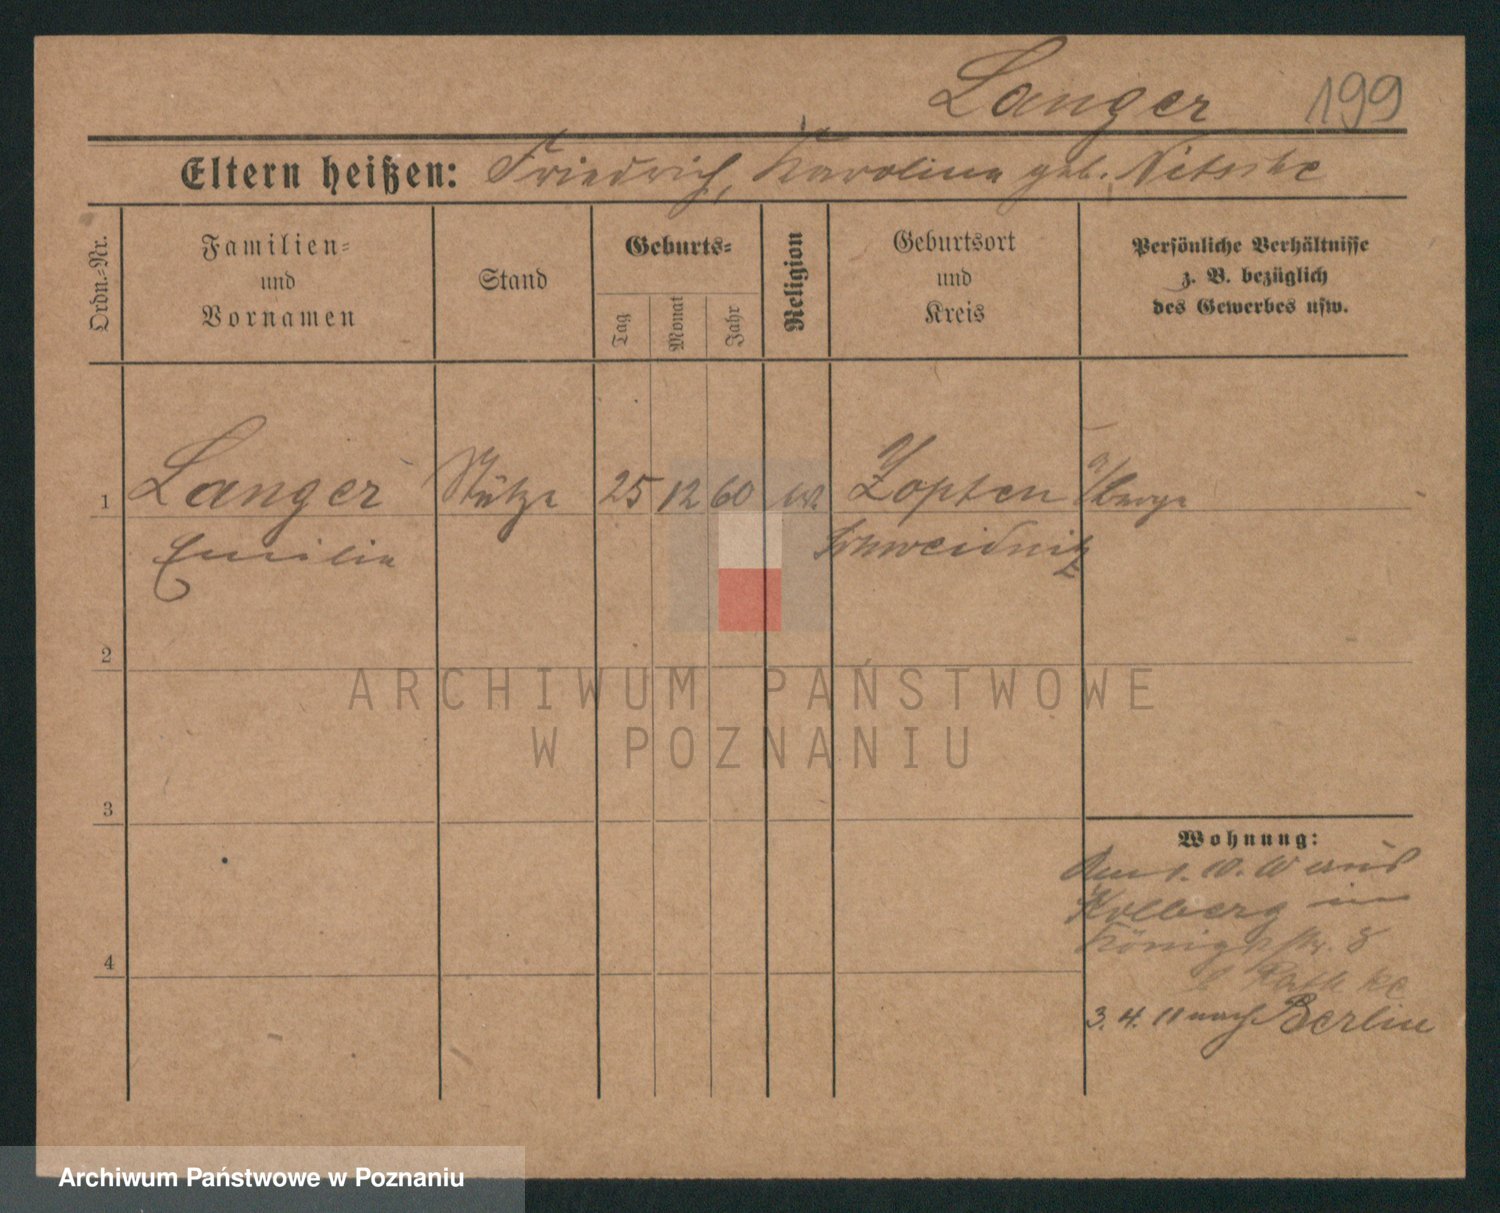 Langer 199
Eltern heißen: Friedrich, Karolina geb. Nitschke
Ordn.=Nr.
Familien=
und
Vornamen
Stand
Geburts=
Tag
Monat
Jahr
Religion
Geburtsort
und
Kreis
Persönliche Verhältnisse
z. B. bezüglich
des Gewerbes usw.
1 Langer Stütze 25 12 60 Zopten a/Berge
Emilie Schweidnitz
2
3
4
Wohnung:
Am 1. 10. 10 aus
Kolberg in
Königstr. 8
3. 4. 11 nach Berlin
ARCHIWUM PAŃSTWOWE
W POZNANIU
Archiwum Państwowe w Poznaniu